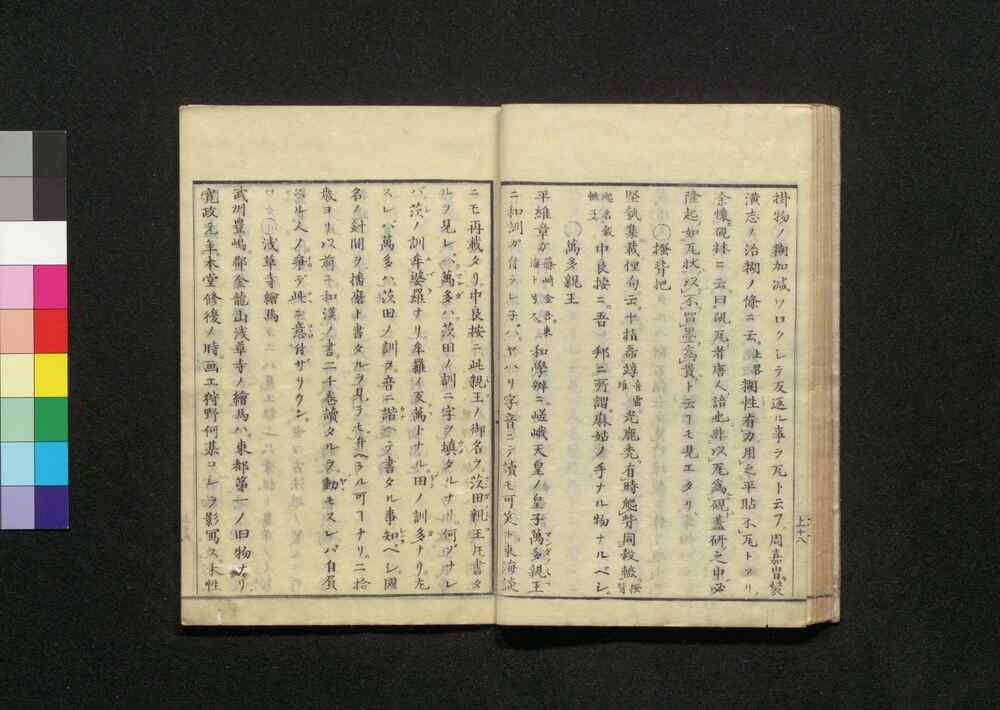 掛物ノ糊加减ソロクレヲ反逐ル事ヲ瓦ト云フ。周嘉冑裝
潢志ノ治糊ノ條ニ云。上畧糊性有力用之平貼不瓦トアリ。
余懐硯林ニ云。曰硯瓦者唐人語也非以瓦爲硯蓋研之中必
隆起如瓦状以不畱墨爲貴ト云フモ見エタリ。
搔背把
堅瓠集載俚句云。十指 光鹿禿有時爬背同轂轆 搔背
中良按ニ。吾邦ニ所謂麻姑ノ手ナル物ナルベシ。
萬多親王
平維章が 篠崎金吾東海ト號ス 和學辨ニ。嵯峨天皇ノ皇子萬多親王
ニ和訓ガ付ラレ子バ。ヤハリ字音ニテ讀モ可笑ト。東海談
ニモ再載タリ。中良按ニ此親王ノ御名ヲ茨田親王トモ書タ
ルヲ見レバ。萬多ハ茨田ノ訓ニ字ヲ填タルナリ。何ヅナレ
バ。茨ノ訓牟婆羅ナリ牟羅ノ反萬トナル。田ノ訓多ナリ。左
スレバ萬多ハ茨田ノ訓ヲ。音ニ諧ヘテ書タル事知ベシ。國
名ノ針間ヲ播磨ト書タルヲ見テモ。弁ヘラル可フナリ。二拾
歳ヨリ以前ニ和漢ノ書二千巻讀タルヲ。動モスレバ自負
セル人ノ 此ニ意付ザリケン。
浅草寺繪馬
武州豊嶋郡金龍山浅草寺ノ繪馬ハ。東都第一ノ旧物ナリ。
寛政元年。本堂修復ノ時。画工狩野何某コレヲ影冩ス。木性
上十八